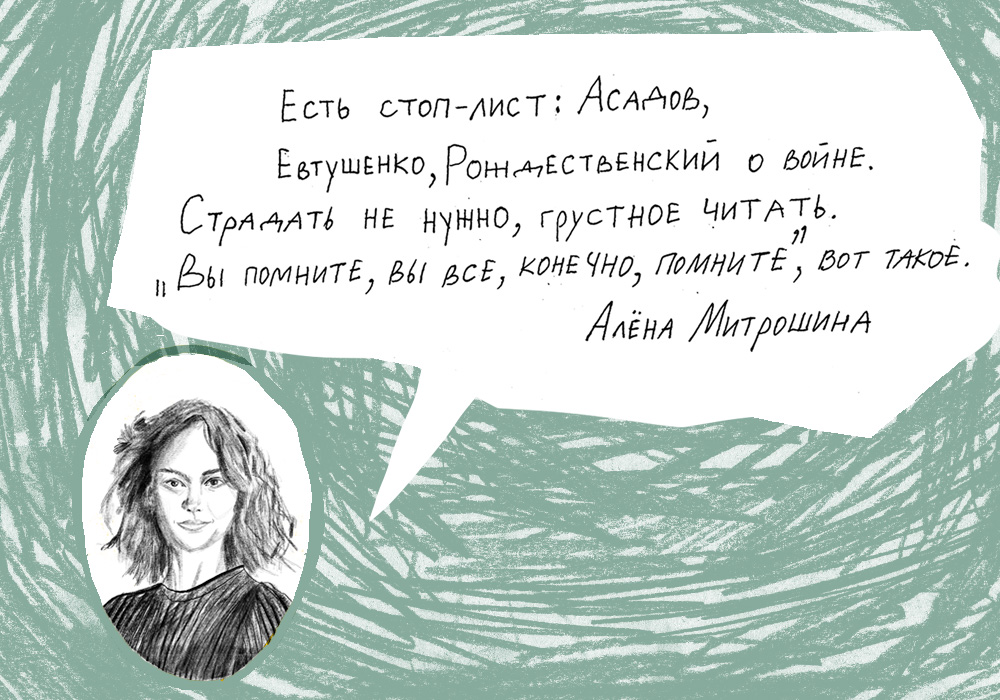 Есть стоп-лист: Асадов,
Евтушенко, Рождественский о войне.
Страдать не нужно, грустное читать.
„Вы помните, вы все, конечно, помните”, вот такое.
Алёна Митрошина